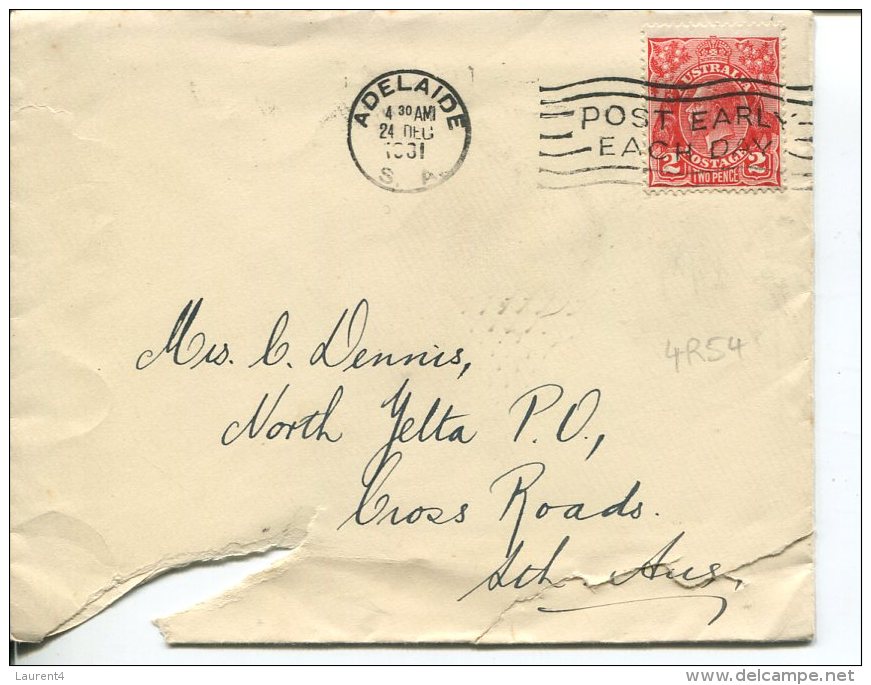 ADELAIDE
4 30 AM
24 DEC
1931
S. A.
POST EARLY
EACH DAY
AUSTRALIA
POSTAGE
2 2
TWO PENCE
4R54
Mrs. C. Dennis,
North Yelta P.O.,
Cross Roads.
Sth Aus.
Laurent4
delcampe.net